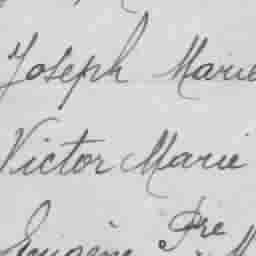 Joseph Marie
Victor Marie
Eugène Pre